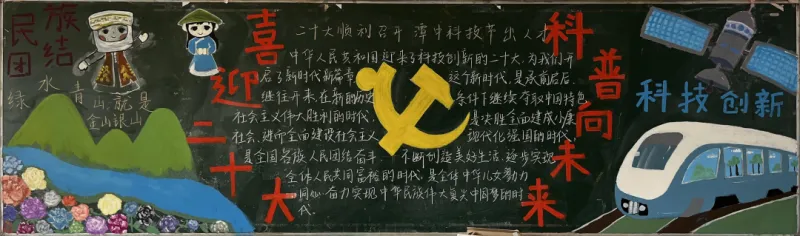 民族
团结
绿水青山就是
金山银山
喜迎二十大
二十大顺利召开 潭中科技节出人才
中华人民共和国迎来了科技创新的二十大,为我们开
启了新时代新篇章 这个新时代,是承前启后、
继往开来,在新的历史 条件下继续夺取中国特色
社会主义伟大胜利的时代, 是决胜全面建成小康
社会、进而全面建设社会主义 现代化强国的时代,
是全国各族人民团结奋斗、 不断创造美好生活、逐步实现
全体人民共同富裕的时代,是全体中华儿女勠力
同心、奋力实现中华民族伟大复兴中国梦的时
代。
科普向未来
科技创新